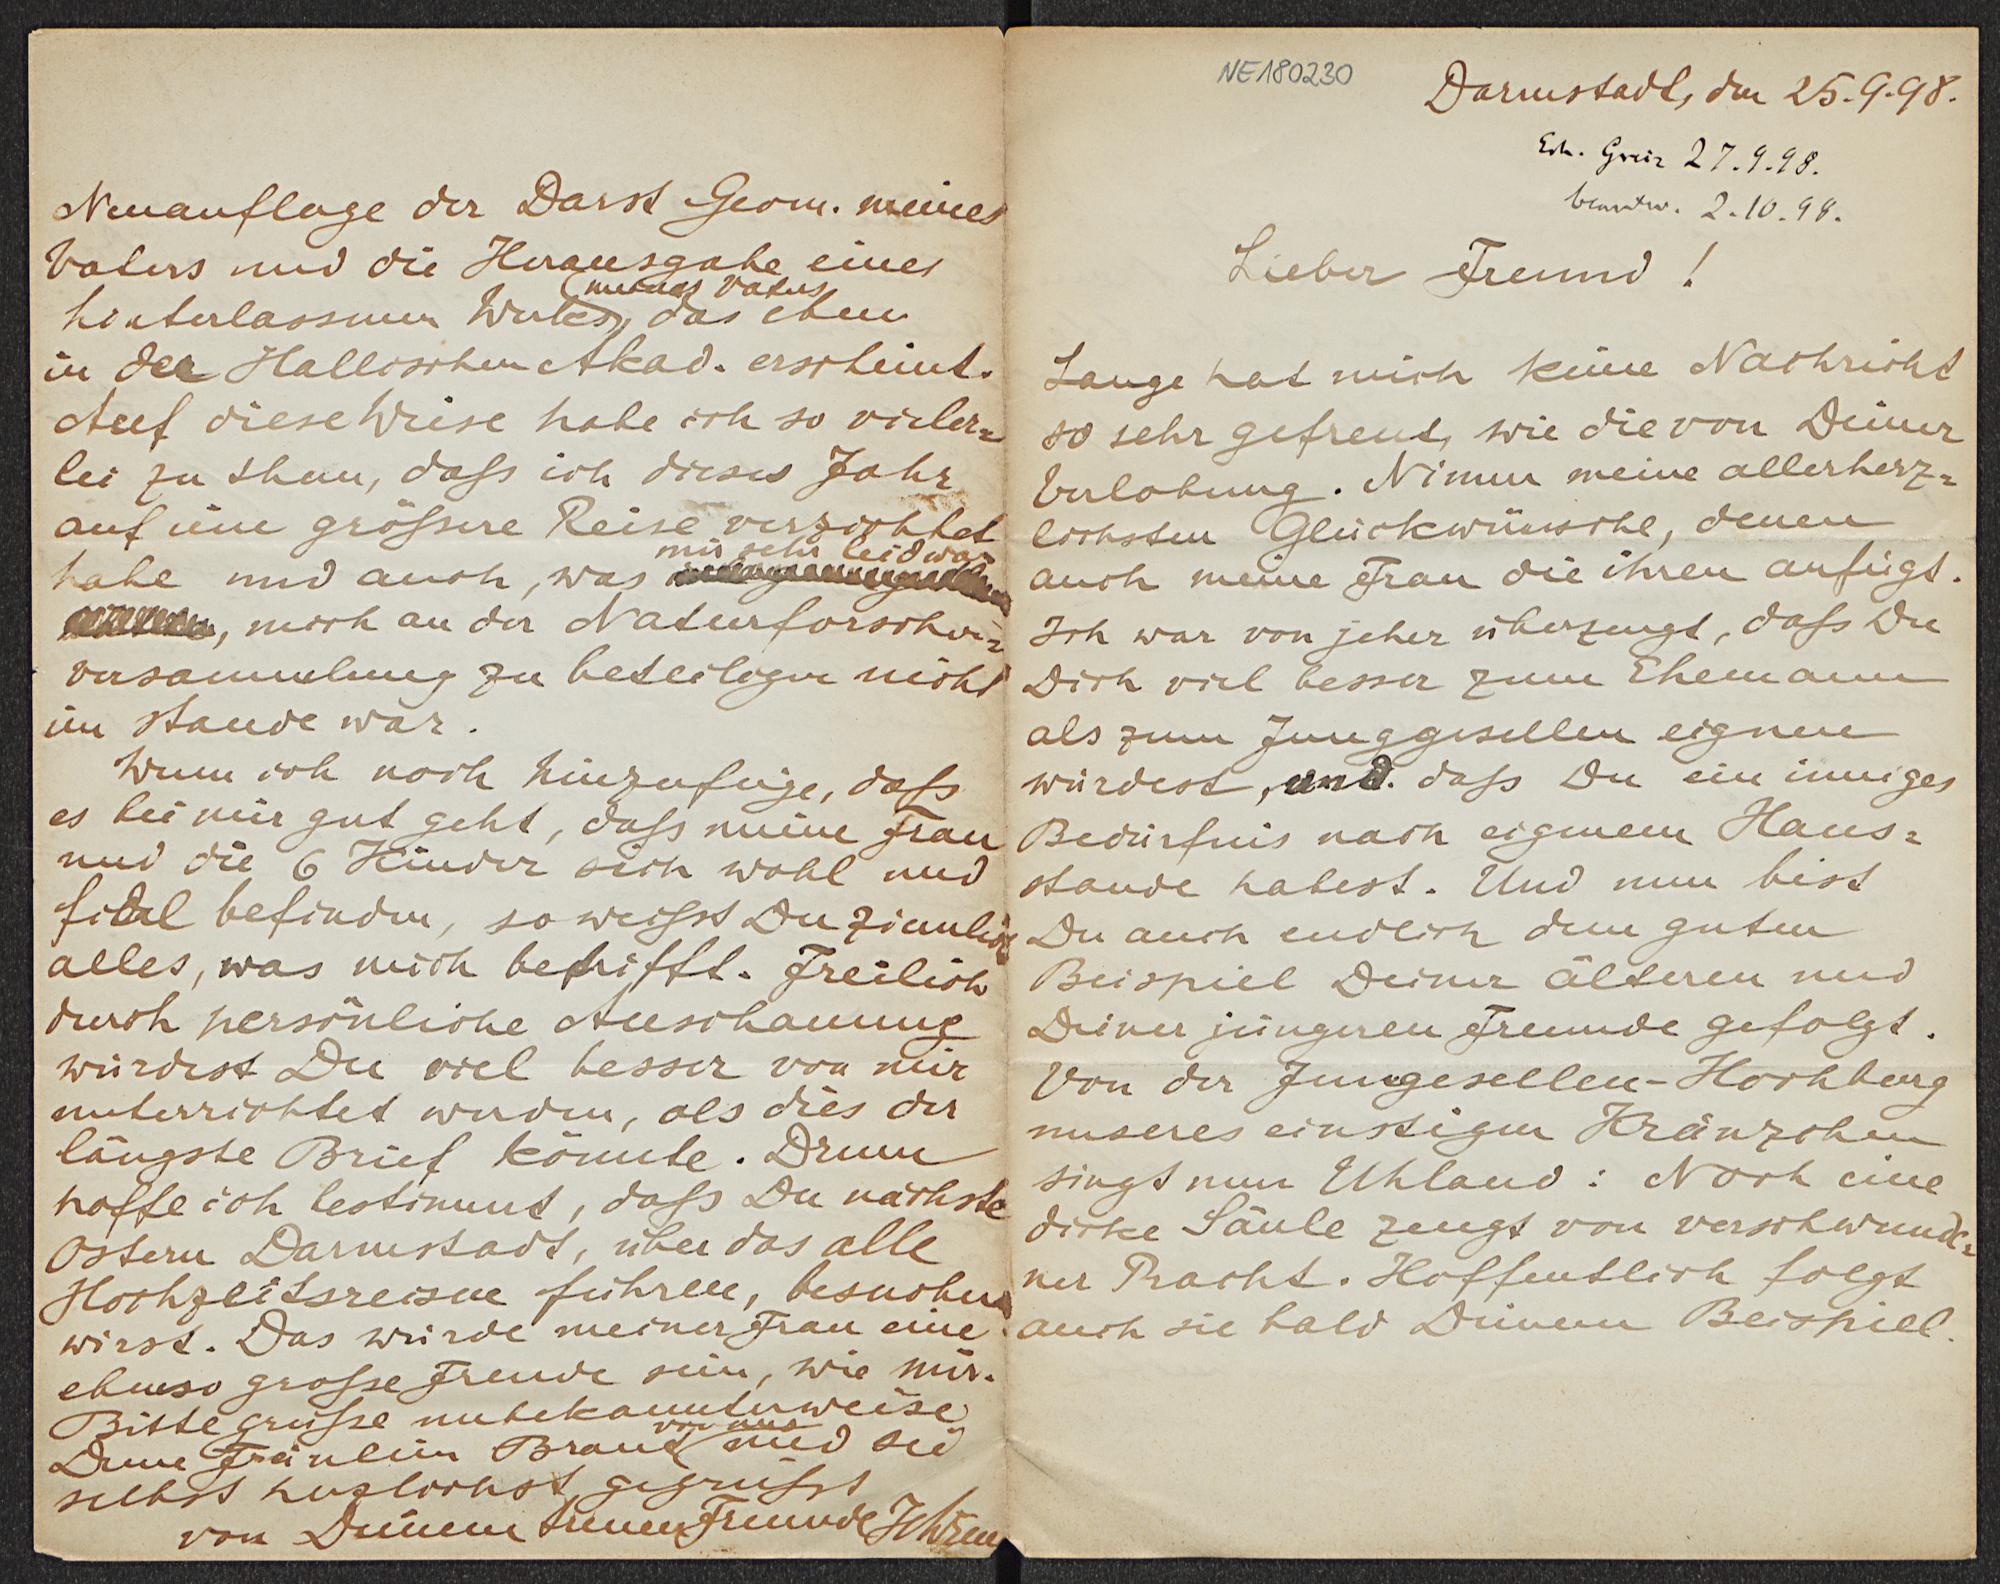 NE180230
Darmstadt, den 25.9.98.
Erh. Greiz 27.9.98.
beantw. 2.10.98.
Lieber Freund!
Lange hat mich keine Nachricht
so sehr gefreut, wie die von Deiner
Verlobung. Nimm meine allerherz=
lichsten Glückwünsche, denen
auch meine Frau die ihren anfügt.
Ich war von jeher überzeugt, daß Du
Dich viel besser zum Ehemann
als zum Junggesellen eignen
würdest, und daß Du ein inniges
Bedürfnis nach eigenem Haus=
stande habest. Und nun bist
Du auch endlich dem guten
Beispiel Deiner älteren und
Deiner jüngeren Freunde gefolgt.
Von der Jungesellen-Hochburg
unseres einstigen Kränzchen
singt nun Uhland: Noch eine
dicke Säule zeugt von verschwunde=
ner Pracht. Hoffentlich folgt
auch sie bald Deinem Beispiel.
Neuauflage der Darst Geom. meines
Vaters und die Herausgabe eines
hinterlassnen Werkes (meines Vaters), das eben
in der Halleschen Akad. erscheint.
Auf diese Weise habe ich so vieler=
lei zu thun, daß ich dieses Jahr
auf eine größere Reise verzichtet
habe und auch, was mir sehr leid war
, mich an der Naturforscher=
versammlung zu beteiligen nicht
im stande war.
Wenn ich noch hinzufüge, daß
es bei mir gut geht, daß meine Frau
und die 6 Kinder sich wohl und
fidel befinden, so weißt Du ziemlich
alles, was mich betrifft. Freilich
durch persönliche Anschauung
würdest Du viel besser von mir
unterrichtet werden, als dies der
längste Brief könnte. Drum
hoffe ich bestimmt, daß Du nächste
Ostern Darmstadt, über das alle
Hochzeitsreisen führen, besuchen
wirst. Das würde meiner Frau eine
ebenso große Freude sein, wie mir.
Bitte grüße unbekannterweise
Deine Fräulein Braut von uns und sei
selbst herzlichst gegrüßt
von Deinem treuen Freunde